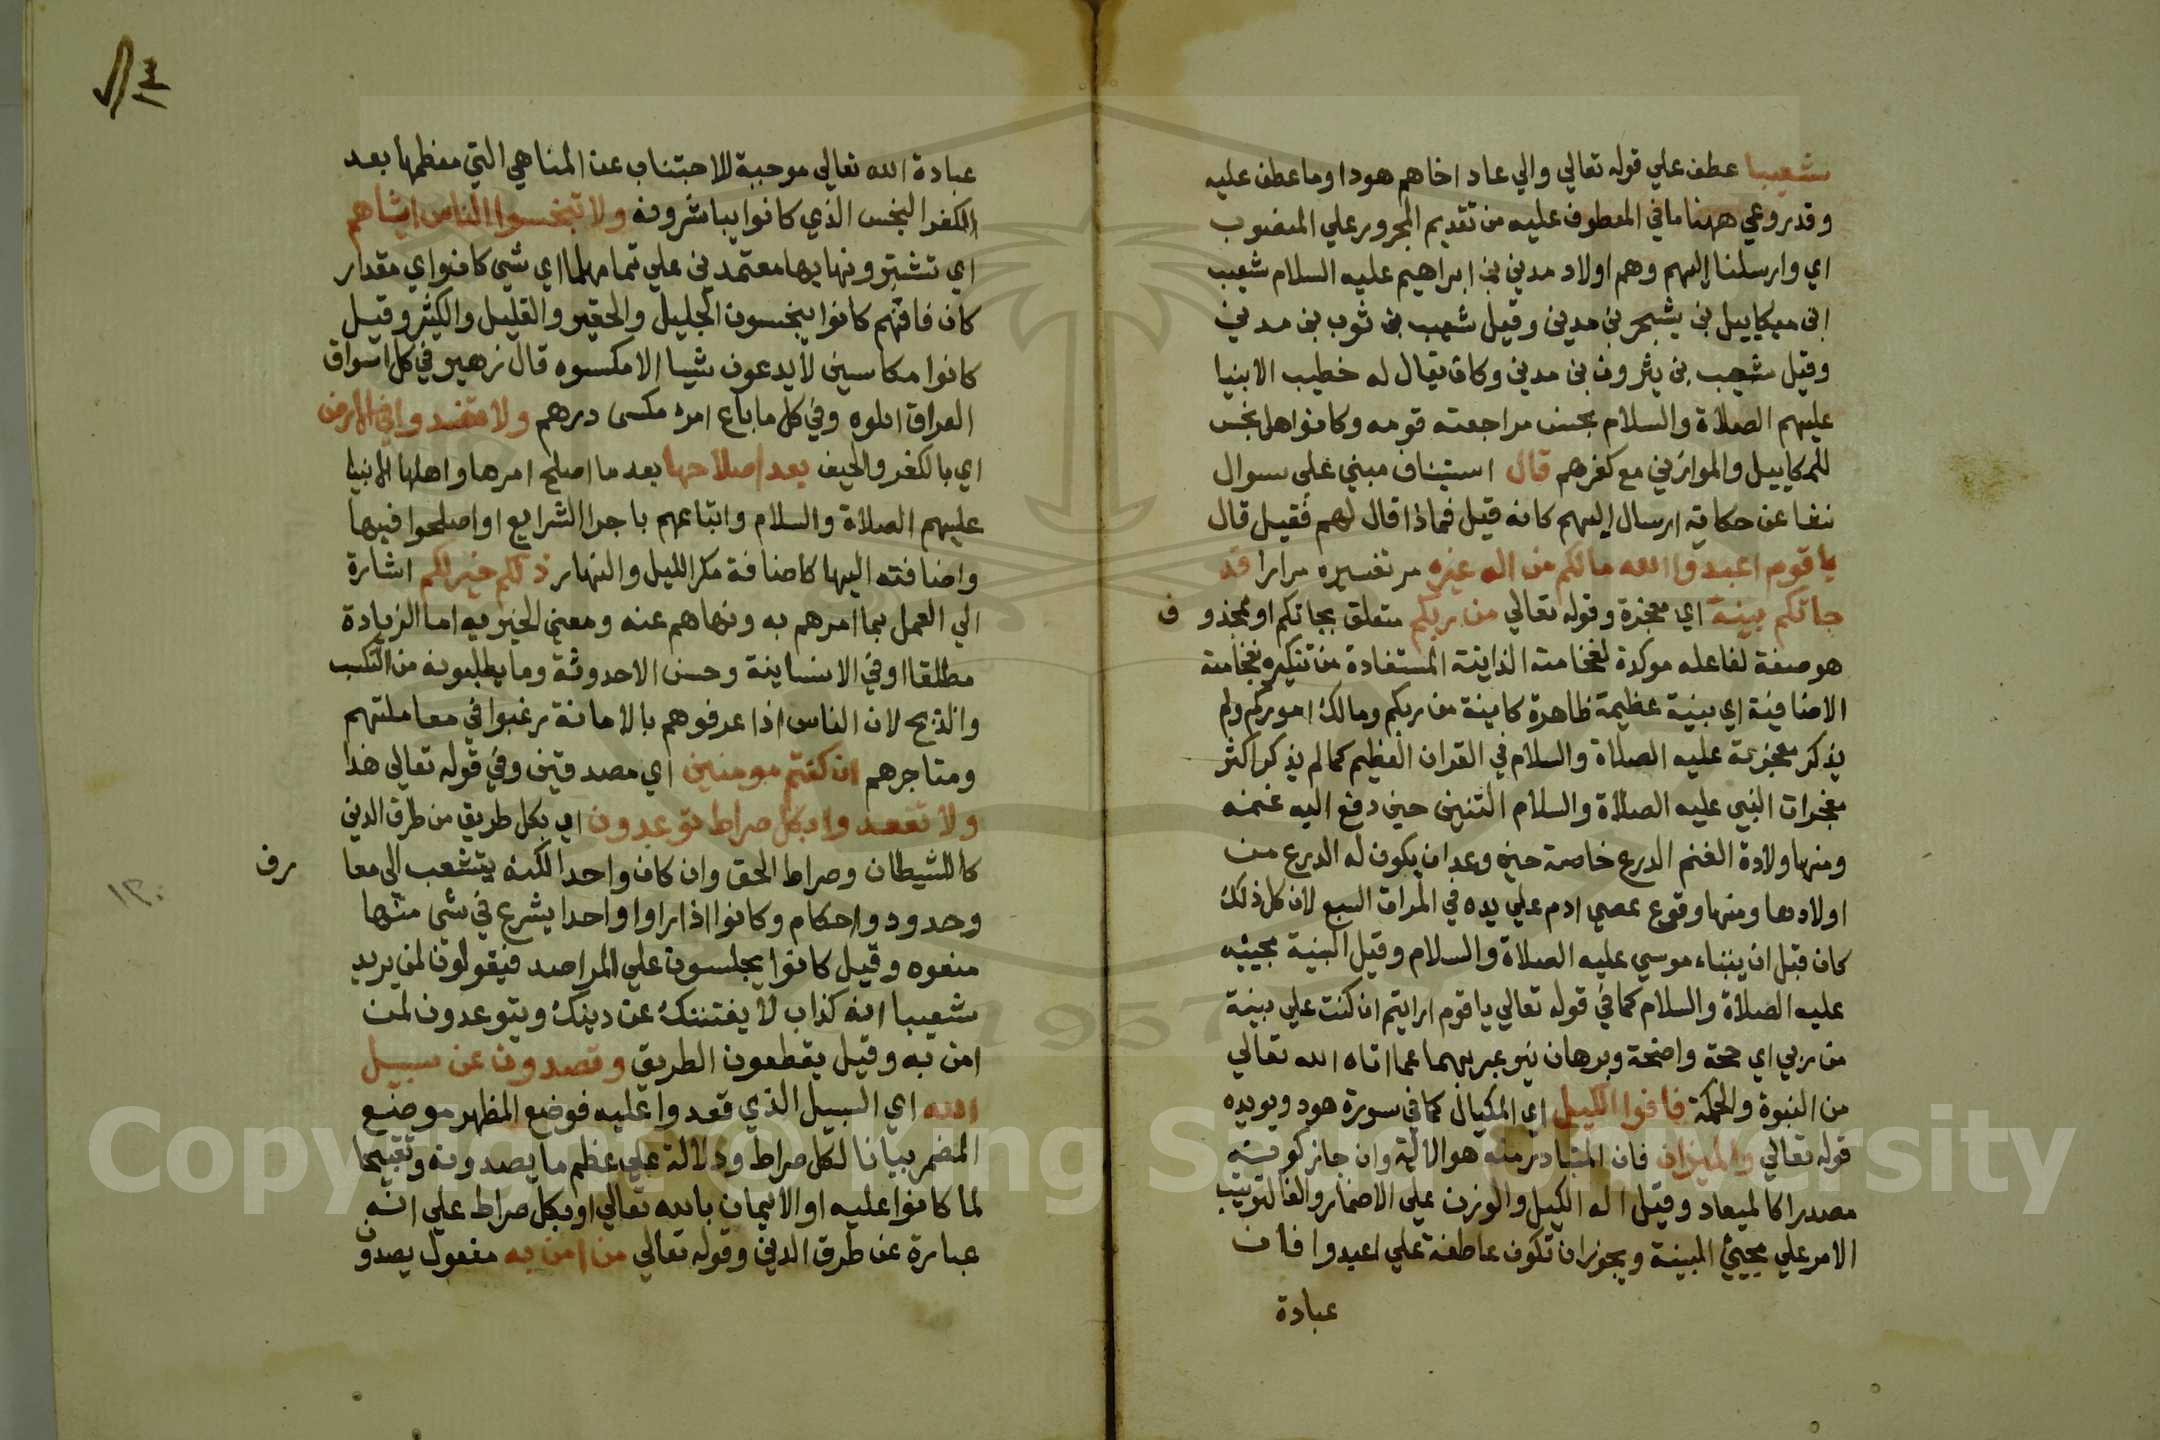 شعيبا عطف علي قوله تعالي والي عاد اخاهم هودا وما عطف عليه
وقد روعي ههنا ما في المعطوف عليه من تقديم المجرور علي المنصوب
اي وارسلنا اليهم وهم اولاد مدين بن ابراهيم عليه السلام شعيب
ابن ميكاييل بن يشجر بن مدين وقيل شعيب بن ثوب بن مدين
وقيل شعيب بن يثرون بن مدين وكان يقال له خطيب الانبيا
عليهم الصلاة والسلام بحسن مراجعته قومه وكانوا اهل بخس
للمكاييل والموازين مع كفرهم قال استيناف مبني علي سوال
نشا عن حكاية ارسال اليهم كانه قيل فماذا قال لهم فقيل قال
يا قوم اعبدوا الله مالكم من اله غيره مر تفسيره مرارا قد
جاتكم بينة اي معجزة وقوله تعالي من ربكم متعلق بجاتكم او بمحذوف
هو صفة لفاعله موكدة لفخامته الذاتية المستفادة من تنكيره بفخامته
الاضافية اي بينة عظيمة ظاهرة كاينة من ربكم ومالك اموركم ولم
يذكر معجزته عليه الصلاة والسلام في القران العظيم كما لم يذكر اكثر
معجزات النبي عليه الصلاة والسلام التنين حين دفع اليه غنمه
ومنها ولادة الغنم الدرع خاصة حين وعد ان يكون له الدرع من
اولادها ومنها وقوع عصي ادم علي يده في المرات السبع لان كل ذلك
كان قبل ان ينباء موسي عليه الصلاة والسلام وقيل البينة مجييه
عليه الصلاة والسلام كما في قوله تعالي يا قوم ارايتم ان كنت علي بينة
من ربي اي حجة واضحة وبرهان نير عبر بهما عما اتاه الله تعالي
من النبوة والحكمة فاوفوا الكيل اي المكيال كما في سورة هود ويويده
قوله تعالي والميزان فان المتبادر منه هو الالة وان جاز كونه
مصدرا كالميعاد وقيل اله الكيل والوزن علي الاضمار والفا لترتيب
الامر علي مجيئ البينة ويجوز ان تكون عاطفة علي اعبدوا فان
عبادة
عبادة الله تعالي موجبة للاجتناب عن المناهي التي معظمها بعد
الكفر البخس الذي كانوا يباشرونه ولا تبخسوا الناس اشياهم
اي تشترونها بها معتمدين علي تمامها اي شي كانوا اي مقدار
كان فانهم كانوا يبخسون الجليل والحقير والقليل والكثير وقيل
كانوا مكاسين لا يدعون شيا الا مكسوه قال زهير في كل اسواق
العراق اتاوه وفي كل ما باع امرء مكس درهم ولا تفسدوا في الارض
اي بالكفر والحيف بعد اصلاحها بعد ما اصلح امرها واهلها الانبيا
عليهم الصلاة والسلام واتباعهم باجرا الشرايع او اصلحوا فيها
واضافته اليها كاضافة مكر الليل والنهار ذلكم خير لكم اشارة
الي العمل بما امرهم به ونهاهم عنه ومعني الخيريه اما الزيادة
مطلقا او في الانسانية وحسن الاحدوثة وما يطلبونه من التكسب
والربح لان الناس اذا عرفوهم بالامانة رغبوا في معاملتهم
ومتاجرهم ان كنتم مومنين اي مصدقين وفي قوله تعالي هذا
ولا تقعدوا بكل صراط توعدون اي بكل طريق من طرق الدين
كالشيطان وصراط الحق وان كان واحدا لكنه يتشعب الي معارف
وحدود واحكام وكانوا اذا راوا واحدا يشرع في شي منها
منعوه وقيل كانوا يجلسون علي المراصد فيقولون لمن يريد
شعيبا انه كذاب لا يفتننك عن دينك ويتوعدون لمن
امن به وقيل يقطعون الطريق وتصدون عن سبيل
الله اي السبيل الذي قعدوا عليه فوضع المظهر موضع
المضمر بيانا لكل صراط ودلالة علي عظم ما يصدونه وتقبيحا
لما كانوا عليه او الايمان بالله تعالي او بكل صراط علي انه
عبارة عن طرق الدين وقوله تعالي من امن به مفعول يصدون
١٣٠
1957
Copyright © King Saud University